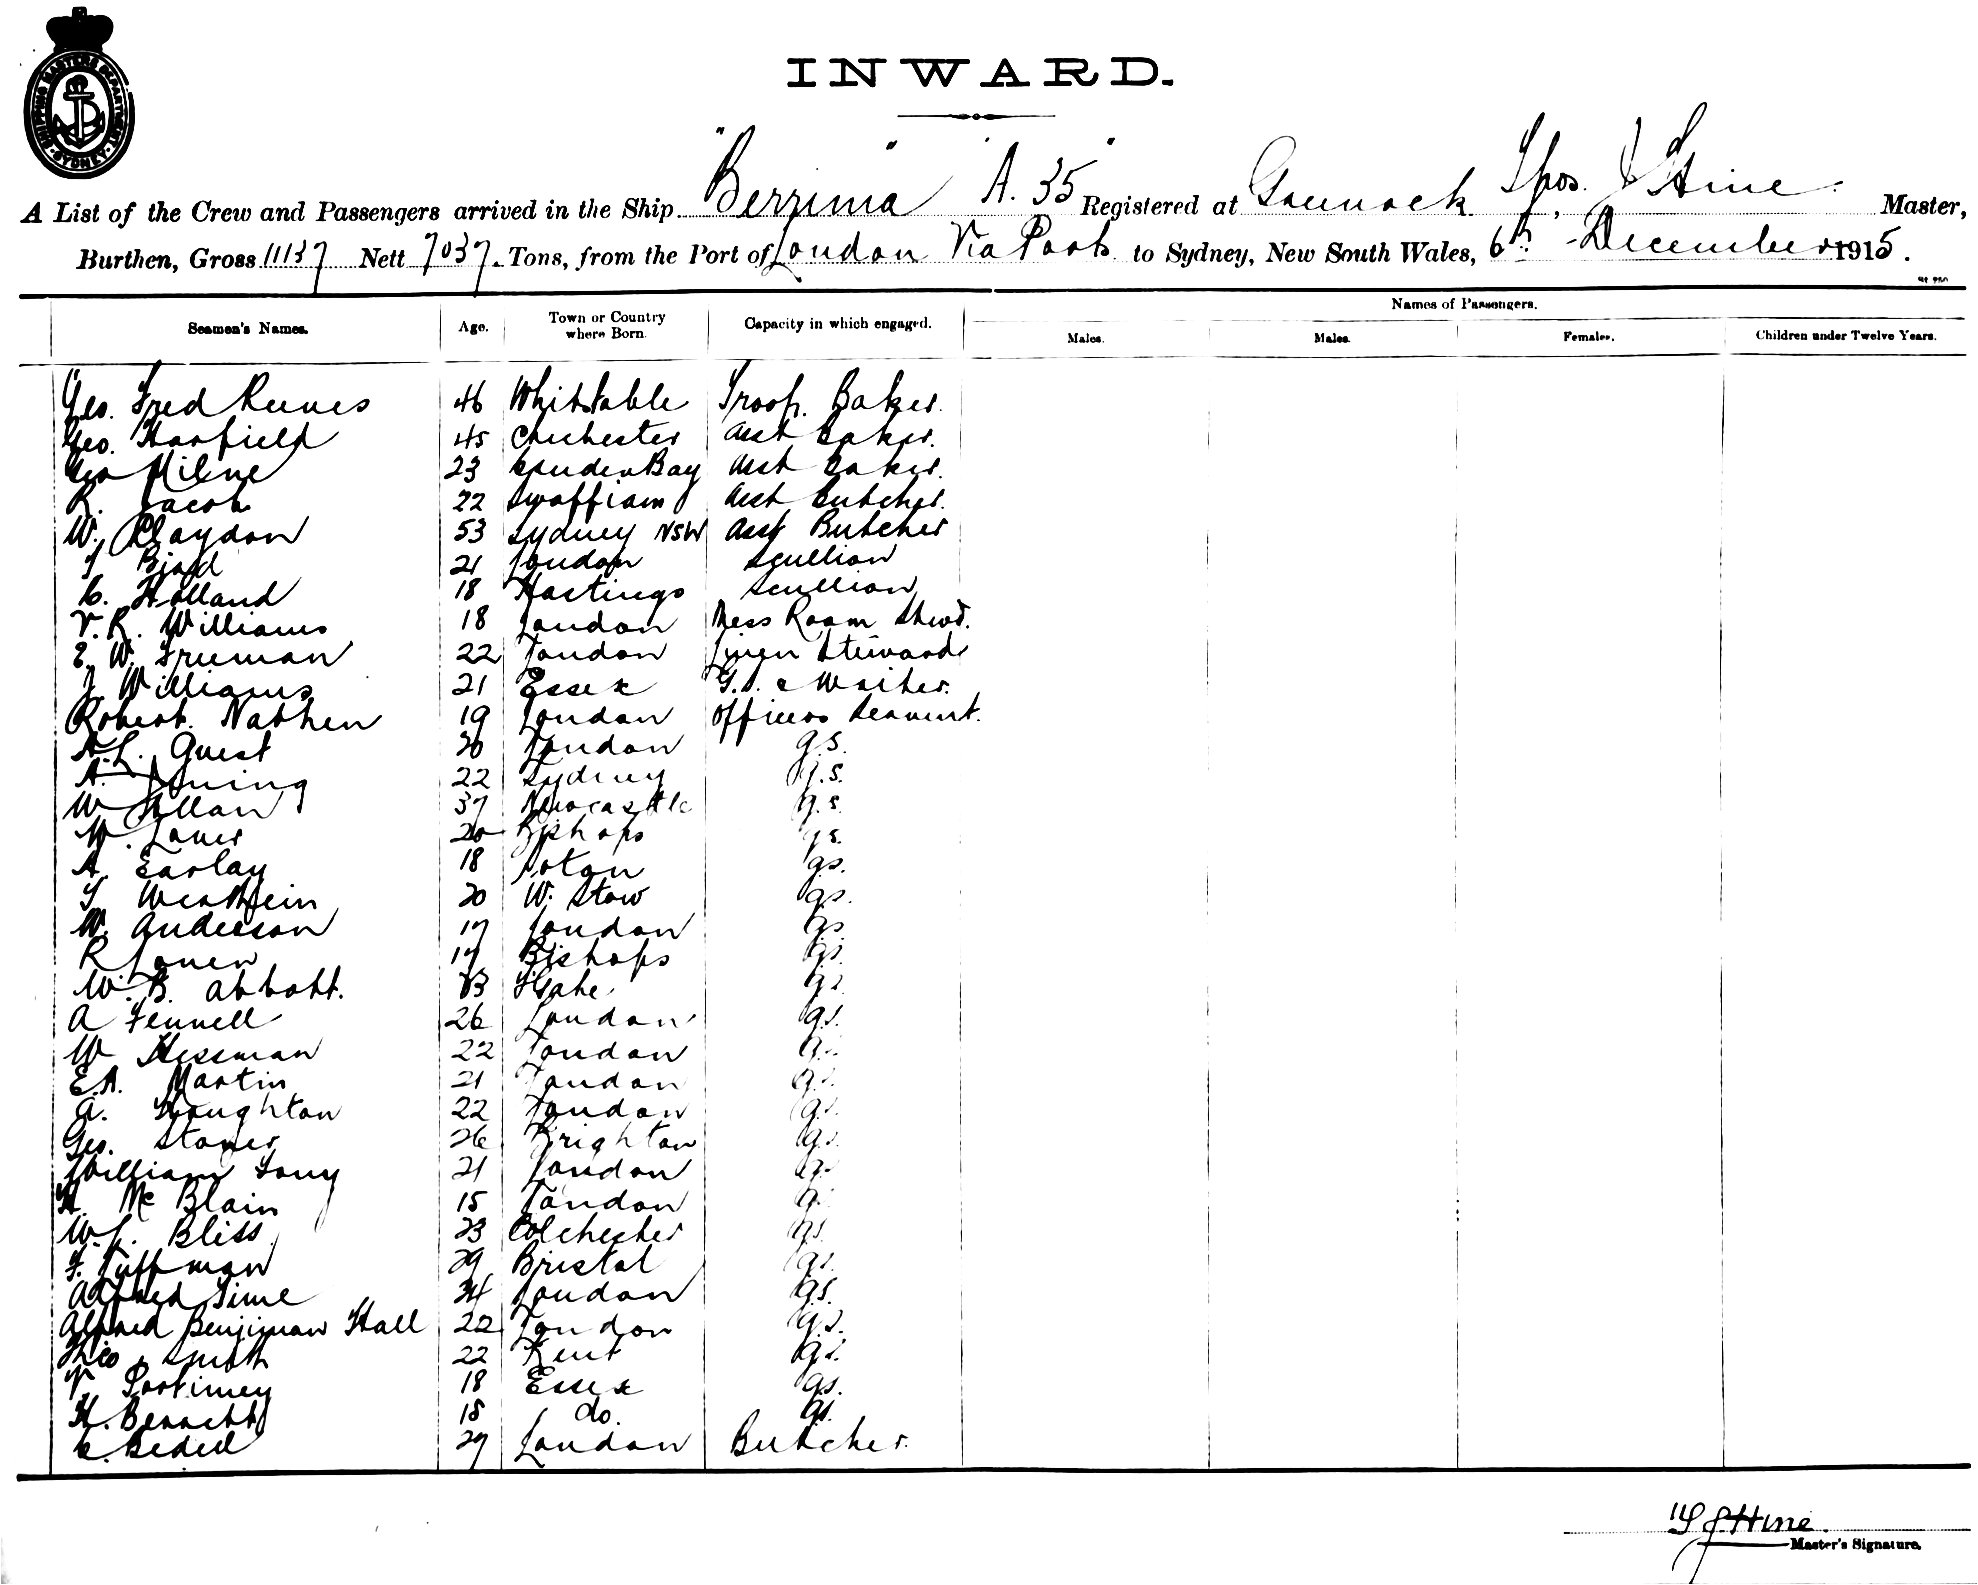 SHIPPING MASTERS DEPARTMENT SYDNEY
INWARD.
A List of the Crew and Passengers arrived in the Ship "Berrima" "A. 35" Registered at Greenock Thos. J Hine Master,
Burthen, Gross 11137 Nett 7037 Tons, from the Port of London Via Ports to Sydney, New South Wales, 6th December 1915.
Names of Passengers.
Seamen's Names. Age. Town or Country where Born. Capacity in which engaged. Males. Males. Females. Children under Twelve Years.
Geo. Fred Reeves 46 Whitstable Troop. Baker.
Geo. Harfield 45 Chichester Asst Baker.
Geo Milne 23 Cruden Bay Asst Baker.
R. Jacob 22 Swaffham Asst Butcher.
W. Claydon 53 Sydney NSW Asst Butcher
Bird 21 London Scullion
C. Holland 18 Hastings Scullion
V. R. Williams 18 London Mess Room Stwd.
E. W. Freeman 22 London Linen Steward
J. Williams 21 Essex G.S. & Waiter.
Robert. Nathen 19 London Officers Servant.
A.L. Guest 20 London G.S.
A. 22 Sydney G.S.
W Allan 37 Newcastle G.S.
W. 20 Bishops G.S.
A. Earlay 18 Soton G.S.
20 W. Stow G.S.
W. Anderson 17 London G.S.
R 17 Bishops G.S.
W. B. Abbott. G.S.
A Fennell 26 London G.S.
W 22 London G.S.
E.A. Martin 21 London G.S.
A. Houghton 22 London G.S.
Geo. Stoner 26 Brighton G.S.
William Long 21 London G.S.
A. Mc Blain 18 London G.S.
W.C. Bliss 23 Colchester G.S.
F. Tuffman 29 Bristol G.S.
Alfred Time 24 London G.S.
Alfred Benjiman Hall 22 London G.S.
Smith 22 Kent G.S.
V. 18 Essex G.S.
H. Bennett 18 do. G.S.
C. Bedell 29 London Butcher.
T J Hine.
Master's Signature.